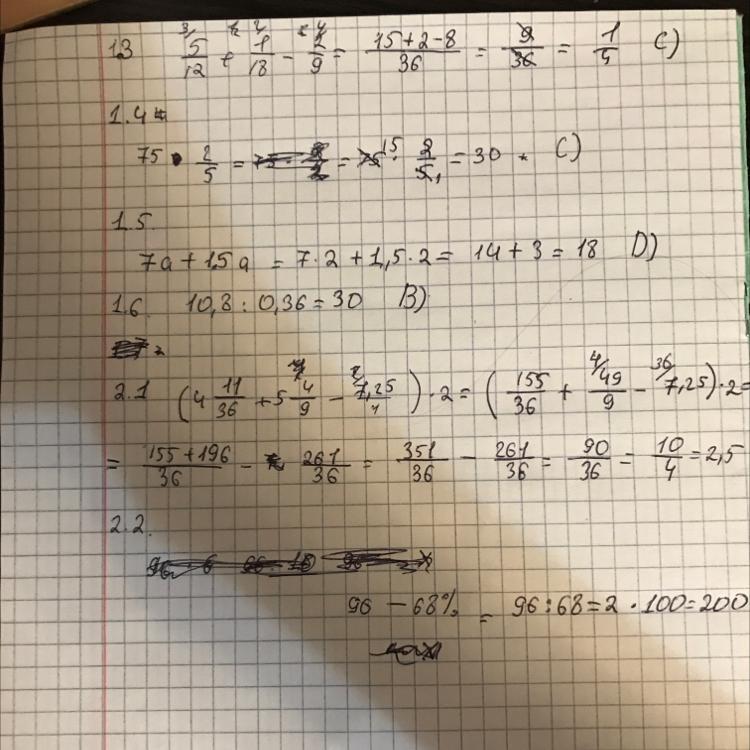 13 5/12 + 1/18 - 2/9 = 15+2-8/36 = 9/36 = 1/4 C)
1.4
75 · 2/5 = 75 · 2/5 = 30 . C)
1.5.
7a + 1,5a = 7·2 + 1,5·2 = 14 + 3 = 18 D)
1.6. 10,8 : 0,36 = 30 B)
2.1 (4 11/36 + 5 4/9 - 7,25) · 2 = (155/36 + 49/9 - 7,25) · 2 =
= 155+196/36 - 261/36 = 351/36 - 261/36 = 90/36 = 10/4 = 2,5
2.2.
96 - 68% = 96:68=2 · 100=200